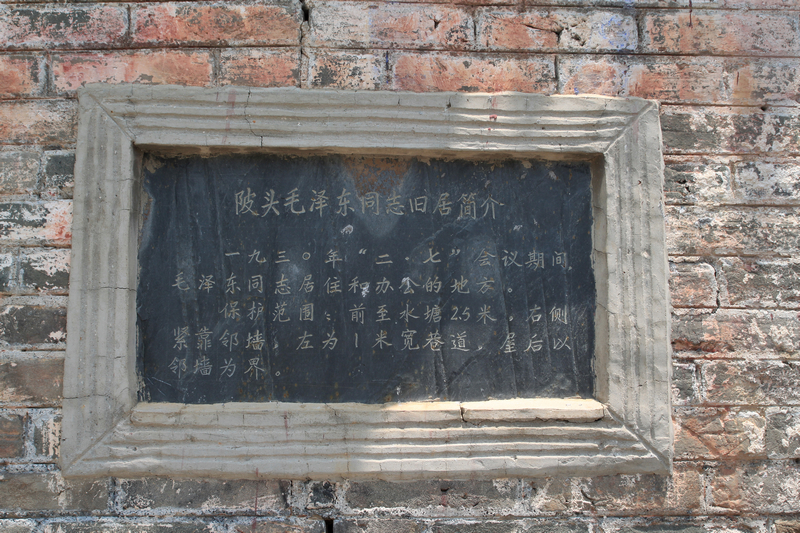 陂头毛泽东同志旧居简介
一九三〇年“二·七”会议期间,
毛泽东同志居住和办公的地方。
保护范围:前至水塘2.5米,右侧
紧靠邻墙,左为1米宽巷道,屋后以
邻墙为界。